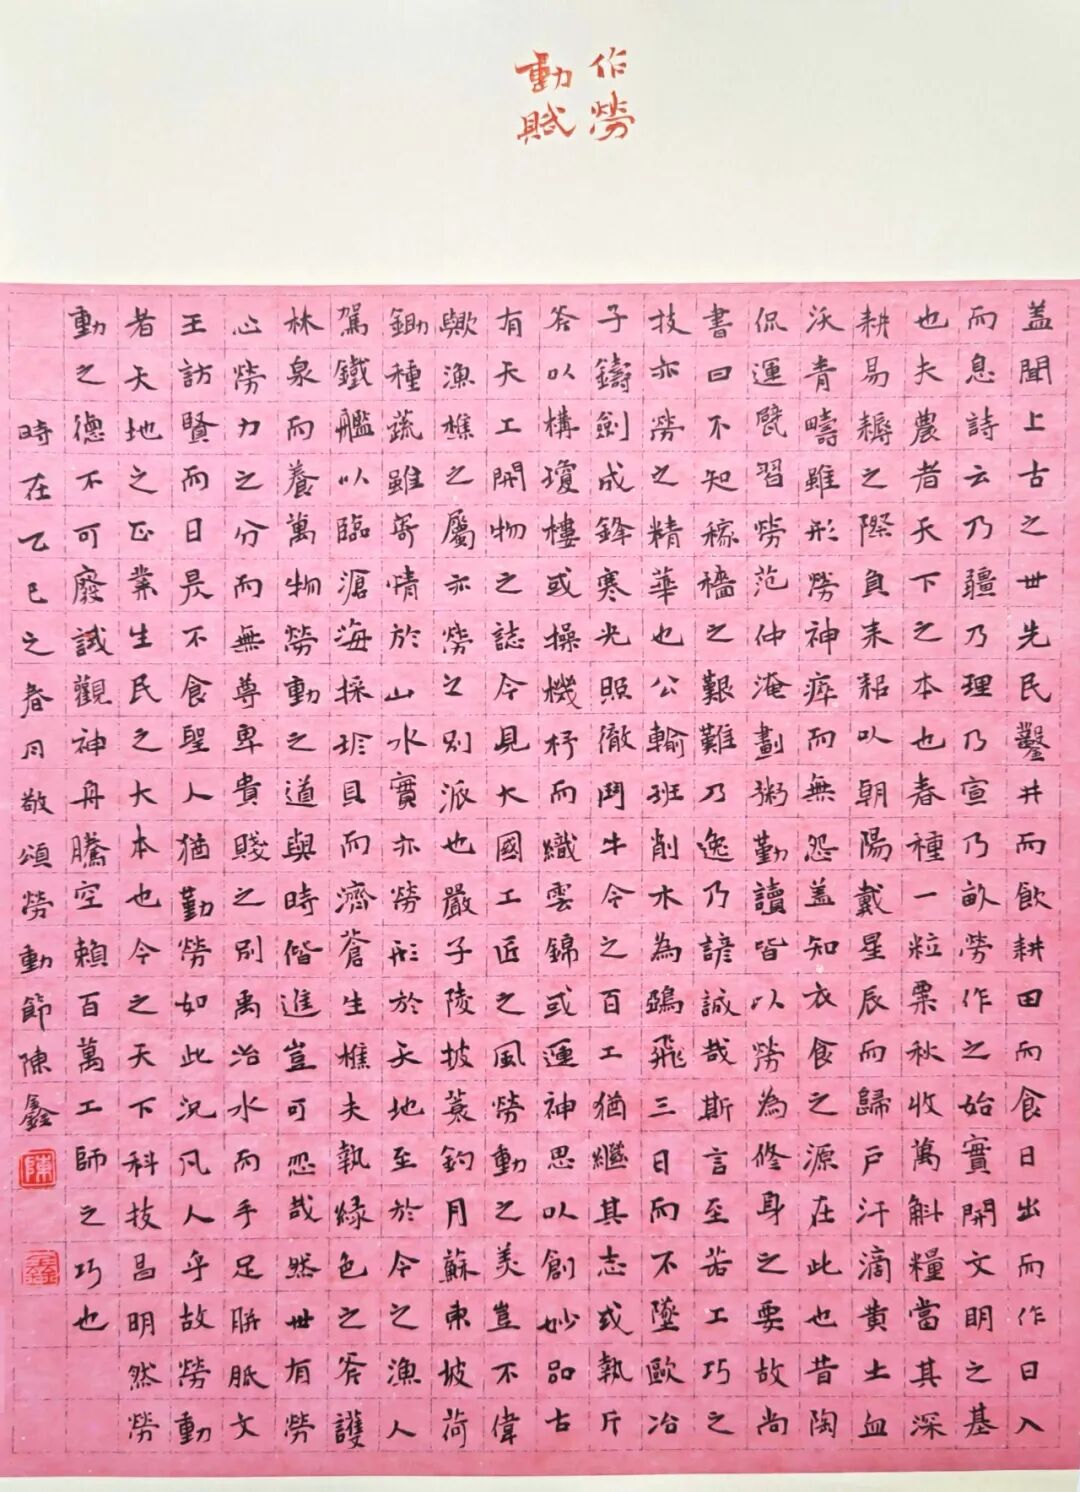 作勞
動賦
蓋聞上古之世先民鑿井而飲耕田而食日出而作日入
而息詩云乃疆乃理乃宣乃畝勞作之始實開文明之基
也夫農者天下之本也春種一粒粟秋收萬斛糧當其深
耕易耨之際負耒耜以朝陽戴星辰而歸戶汗滴黃土血
沃青疇雖形勞神瘁而無怨蓋知衣食之源在此也昔陶
侃運甓習勞范仲淹劃粥勤讀皆以勞為修身之要故尚
書曰不知稼穡之艱難乃逸乃諺誠哉斯言至若工巧之
技亦勞之精華也公輸班削木為鵶飛三日而不墜歐冶
子鑄劍成鋒寒光照徹鬥牛今之百工猶繼其志或執斤
斧以構瓊樓或操機杼而織雲錦或運神思以創妙品古
有天工開物之誌今見大國工匠之風勞動之美豈不偉
歟漁樵之屬亦勞之別派也嚴子陵披蓑釣月蘇東坡荷
鋤種蔬雖寄情於山水實亦勞形於天地至於今之漁人
駕鐵艦以臨滄海採珍貝而濟蒼生樵夫執綠色之斧護
林泉而養萬物勞動之道與時偕進豈可忽哉然世有勞
心勞力之分而無尊卑貴賤之別禹治水而手足胼胝文
王訪賢而日昃不食聖人猶勤勞如此況凡人乎故勞動
者天地之正業生民之大本也今之天下科技昌明然勞
動之德不可廢試觀神舟騰空賴百萬工師之巧也
時在乙巳之春月敬頌勞動節陳鑫
陳
鑫